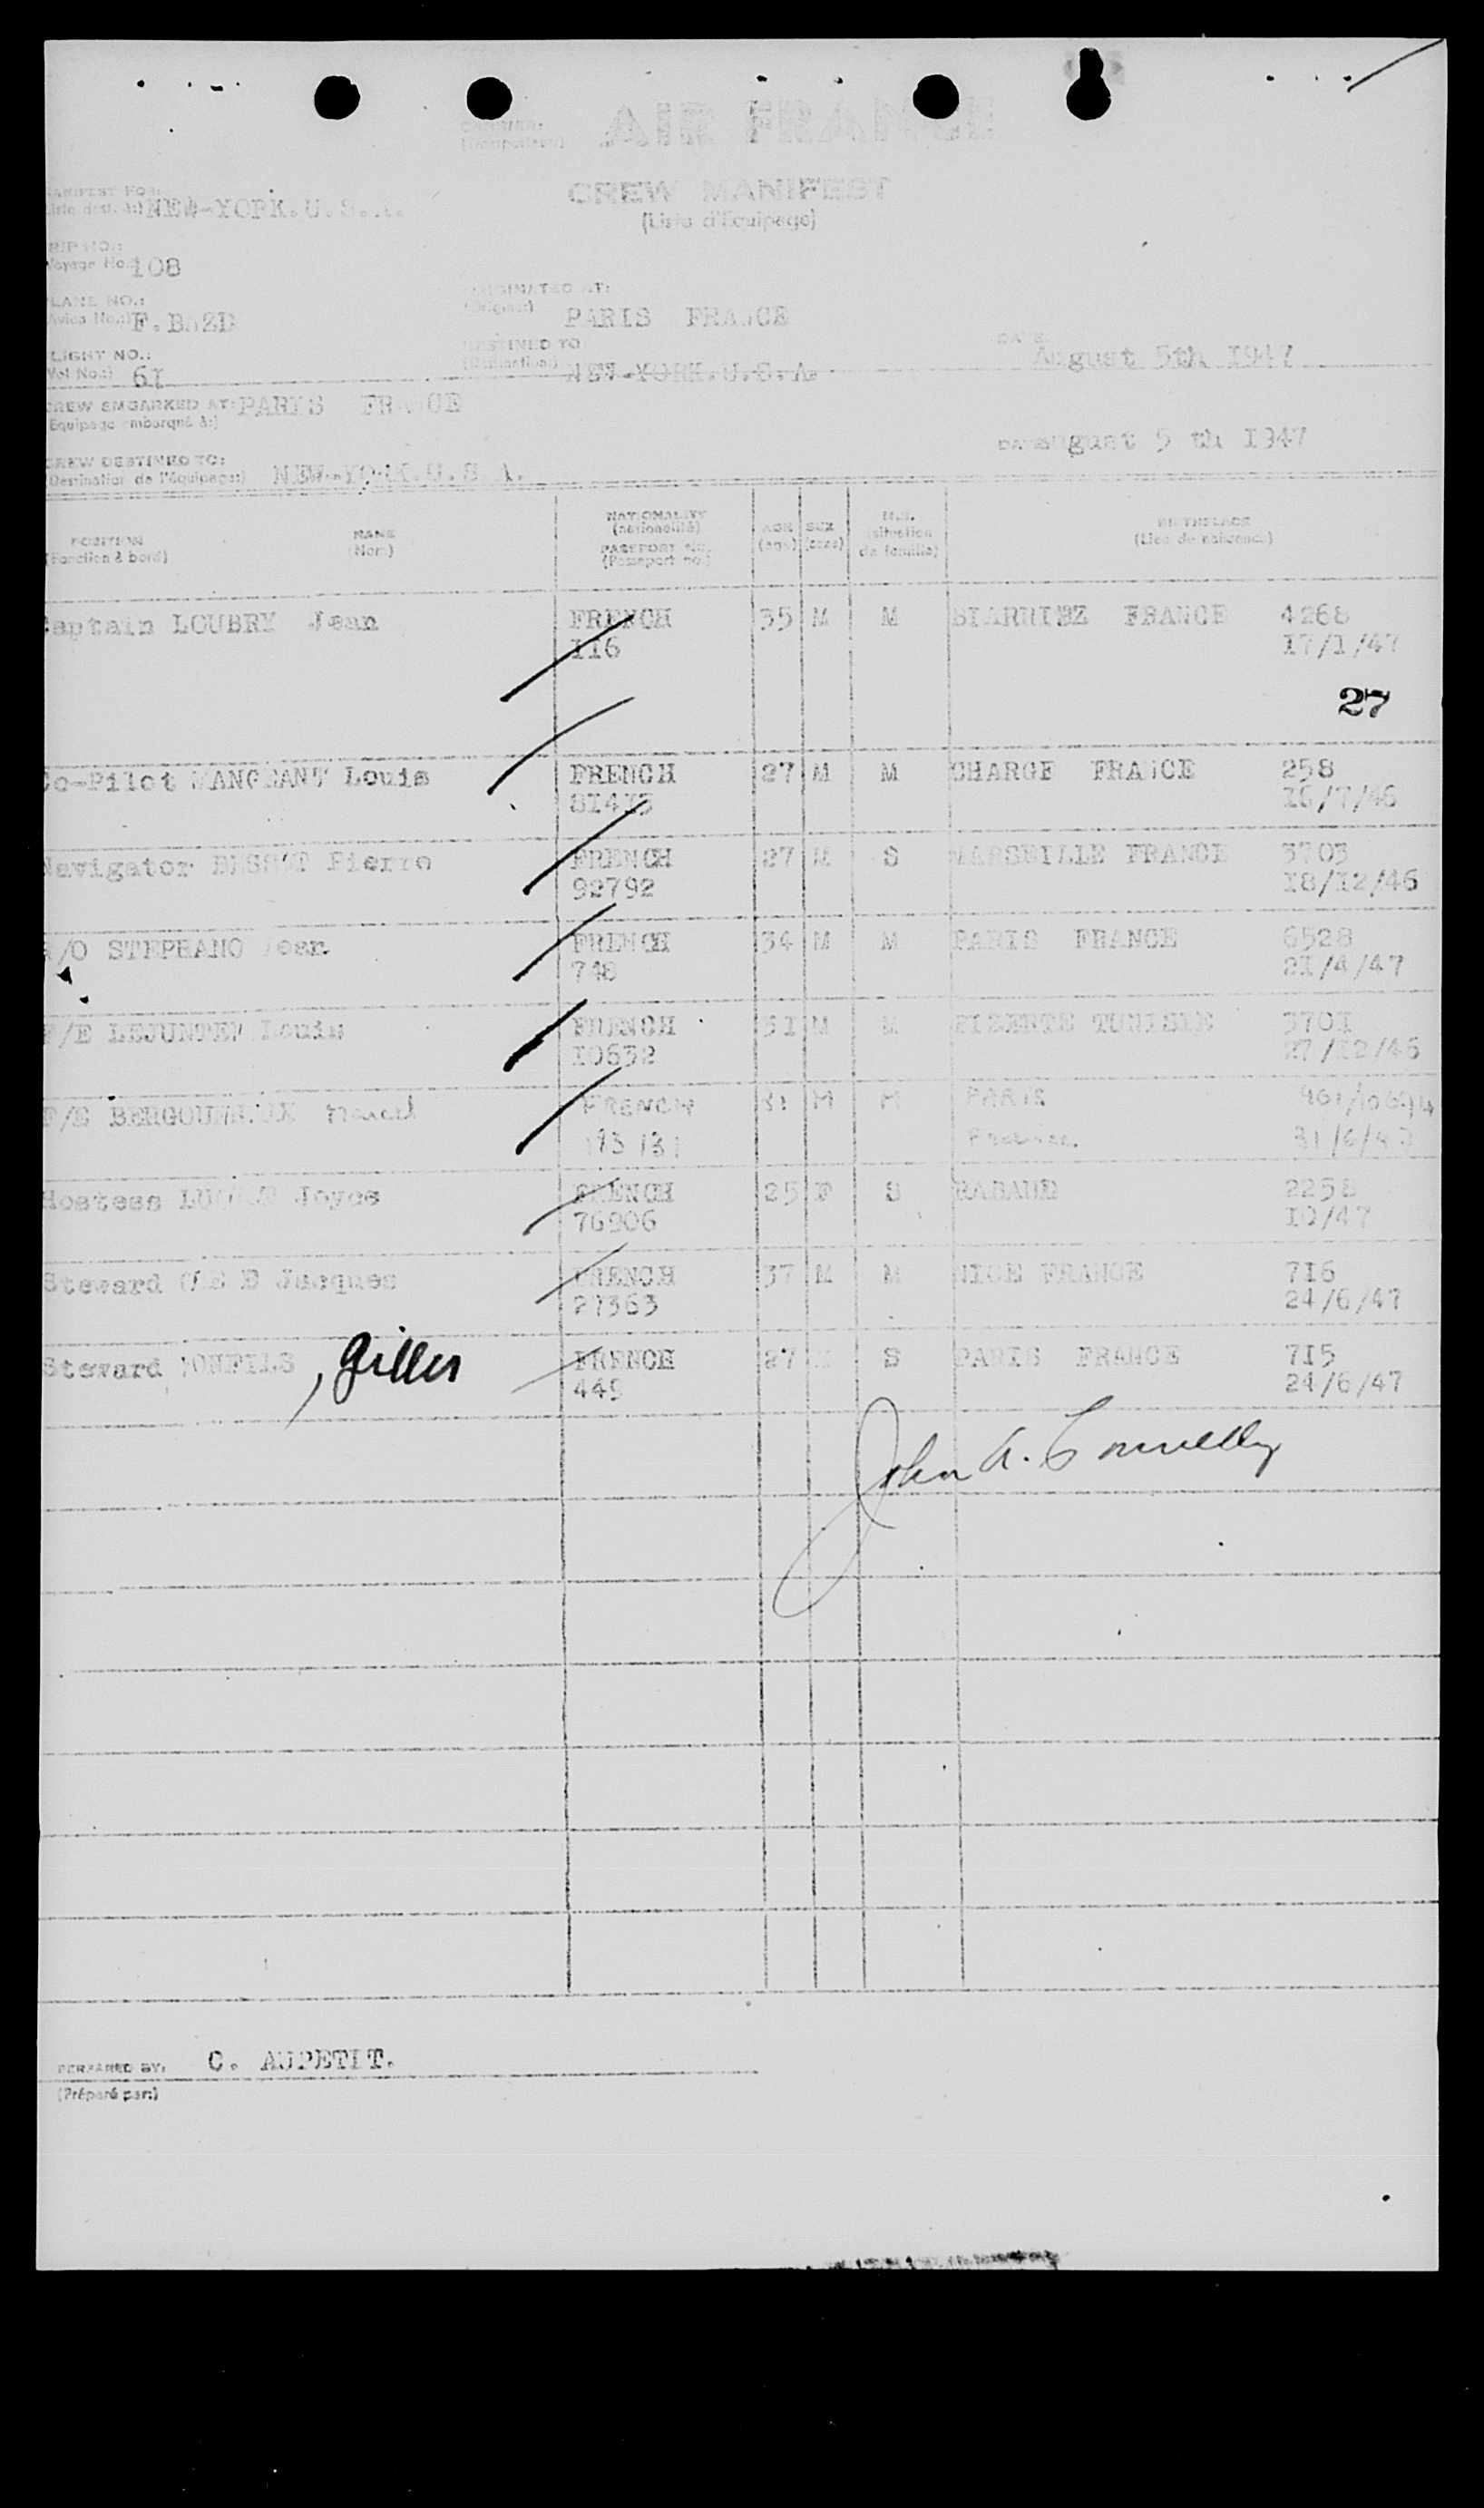 AIR FRANCE
CREW MANIFEST
(Liste d'Equipage)
NEW-YORK.U.S.
Voyage No. 108
PLANE NO.:
FLIGHT NO.:
61
ORIGINATED AT:
PARIS FRANCE
DESTINED TO
NEW-YORK.U.S.A.
August 5th 1947
CREW EMBARKED AT: PARIS FRANCE
(Equipage embarqué à:)
August 5 th 1947
CREW DESTINED TO:
(Destination de l'équipage:) NEW-YORK.U.S.A.
POSITION
(Fonction à bord)
NAME
(Nom)
NATIONALITY
(nationalité)
PASSPORT NO.
(Passeport no.)
AGE
(age)
SEX
(sexe)
M.S.
(situation
de famille)
BIRTHPLACE
(Lieu de naissance)
Captain LOUBRY Jean FRENCH 35 M M BIARRITZ FRANCE 4268
116 17/1/47
27
Co-Pilot Louis FRENCH 27 M M FRANCE 258
81415 16/7/46
Navigator Pierre FRENCH 27 M S MARSEILLE FRANCE 3703
92792 18/12/46
/O STEPHANO Jean FRENCH 34 M M PARIS FRANCE 6528
748 21/4/47
/E Louis FRENCH 31 M M BIZERTE TUNISIE 3701
10632 27/12/46
Marcel FRENCH 31 M M PARIS
France.
Hostess Joyce FRENCH 25 F S RABAUD 2258
76906 10/47
Steward Jacques FRENCH 37 M M NICE FRANCE 716
27363 24/6/47
Steward , Gilles FRENCH 27 S PARIS FRANCE 715
449 24/6/47
John A. Connelly
PREPARED BY: C. AUPETIT.
(Préparé par:)